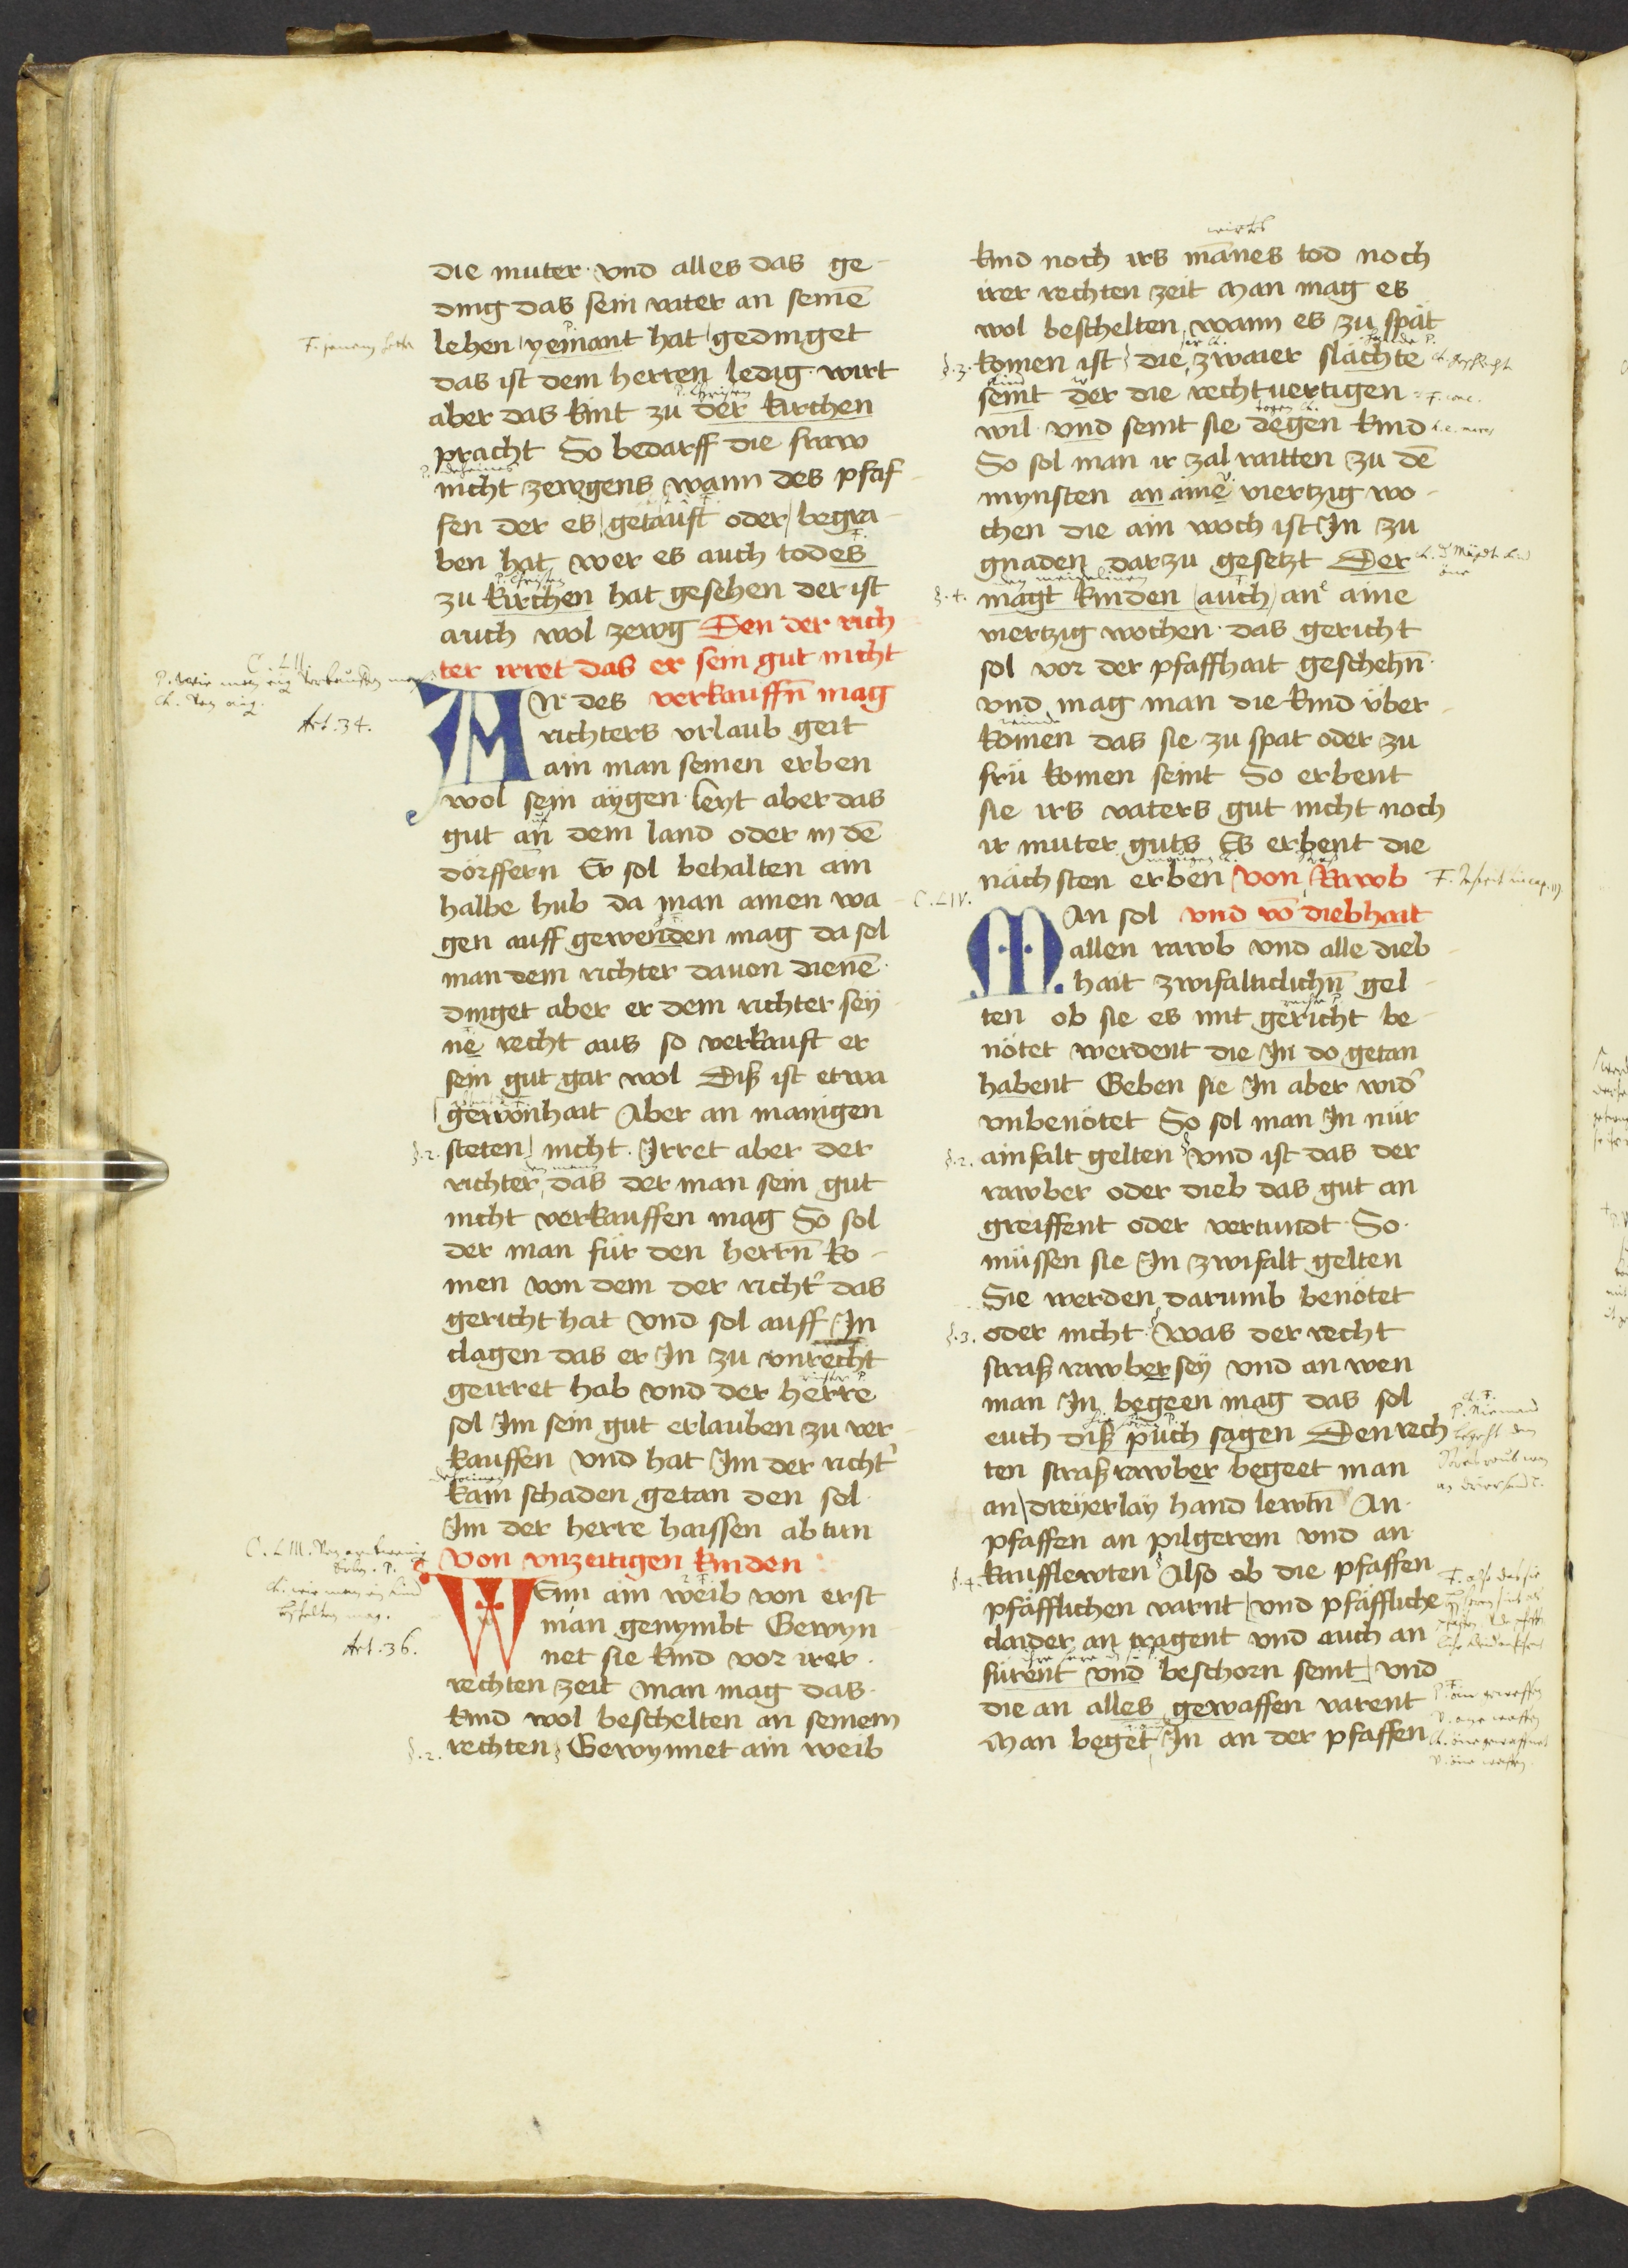 die muter · vnd alles das ge
ding das sein vater an seinē
lehen yemant hat gedinget
das ist dem herren ledig · wirt
aber das kint zu der kirchen
pracht So bedarff die fraw
nicht zewgens wann des pfaf
fen der es getauft oder begra
ben hat wer es auch todes
zu kirchen hat gesehen der ist
auch wol zewg Den der rich
ter irret das er sein gut nicht
verkauffn̄ mag
An des
richters vrlaub geit
ain man seinen erben
wol sein aÿgen · leyt aber das
gut an dem land oder in dē
dörffern Er sol behalten ain
halbe hub da man ainen wa
gen auff gewenden mag da sol
man dem richter dauon dienē ·
dinget aber er dem richter seÿ
nē recht aus so verkauft er
sein gut gar wol Diß ist etwa
gewonhait Aber an manigen
§.2. steten nicht · Irret aber der
richter das der man sein gut
nicht verkauffen mag So sol
der man für den herrn̄ ko
men von dem der richt' das
gericht hat vnd sol auff In
clagen das er In zu vnrecht
geirret hab vnd der herre
sol Im sein gut erlauben zu ver
kauffen vnd hat Im der richt'
kain schaden getan den sol ·
Im der herre haissen ab tun
von vnzeitigen kinden
Wenn ain weib von erst
man genymbt Gewyn
net sie kind vor irer ·
rechten zeit Man mag das ·
kind wol beschelten an seinem
§.2. rechten Gewynnet ain weib
Art. 34.
Art. 36.
wirts
kind noch irs mānes tod noch
irer rechten zeit Man mag es
wol beschelten wann es zu spät
§.3. komen ist die zwaier slächte
seint der die rechtuertigen
wil · vnd seint sie degen kind
So sol man ir zal raitten zu dē
mynsten an ainē viertzig wo
chen die ain woch ist In zu
gnaden darzu gesetzt Der
§.4. magt kinden auch an aine
viertzig wochen · das gericht
sol vor der pfaffhait geschehn̄ ·
vnd mag man die kind über
komen das sie zu spat oder zu
frü komen seint So erbent
sie irs vaters gut nicht noch
ir muter guts Es erbent die
nächsten erben von Rawb
C. LIV.
vnd vō diebhait
Man sol
allen rawb vnd alle dieb
hait zwifalticlichn̄ gel
ten ob sie es mit gericht be
nötet werdent die In do getan
habent Geben sie In aber wid'
vnbenötet So sol man In nür
§.2. ainfalt gelten vnd ist das der
rawber oder dieb das gut an
greiffent oder vertundt · So ·
müssen sie In zwifalt gelten
Sie werden darumb benötet
§.3. oder nicht · Was der recht
straß rawber seÿ vnd an wen
man In begeen mag das sol
euch diß puch sagen Den rech
ten straßrawber begeet man
an dreÿerlaÿ hand lewtn̄ An ·
pfaffen an pilgerem vnd an
§.4. kaufflewten Also ob die pfaffen
pfäfflichen varnt vnd pfäffliche
claider an tragent vnd auch an
fürent vnd beschorn seint vnd
die an alles gewaffen varent
Man beget In an der pfaffen